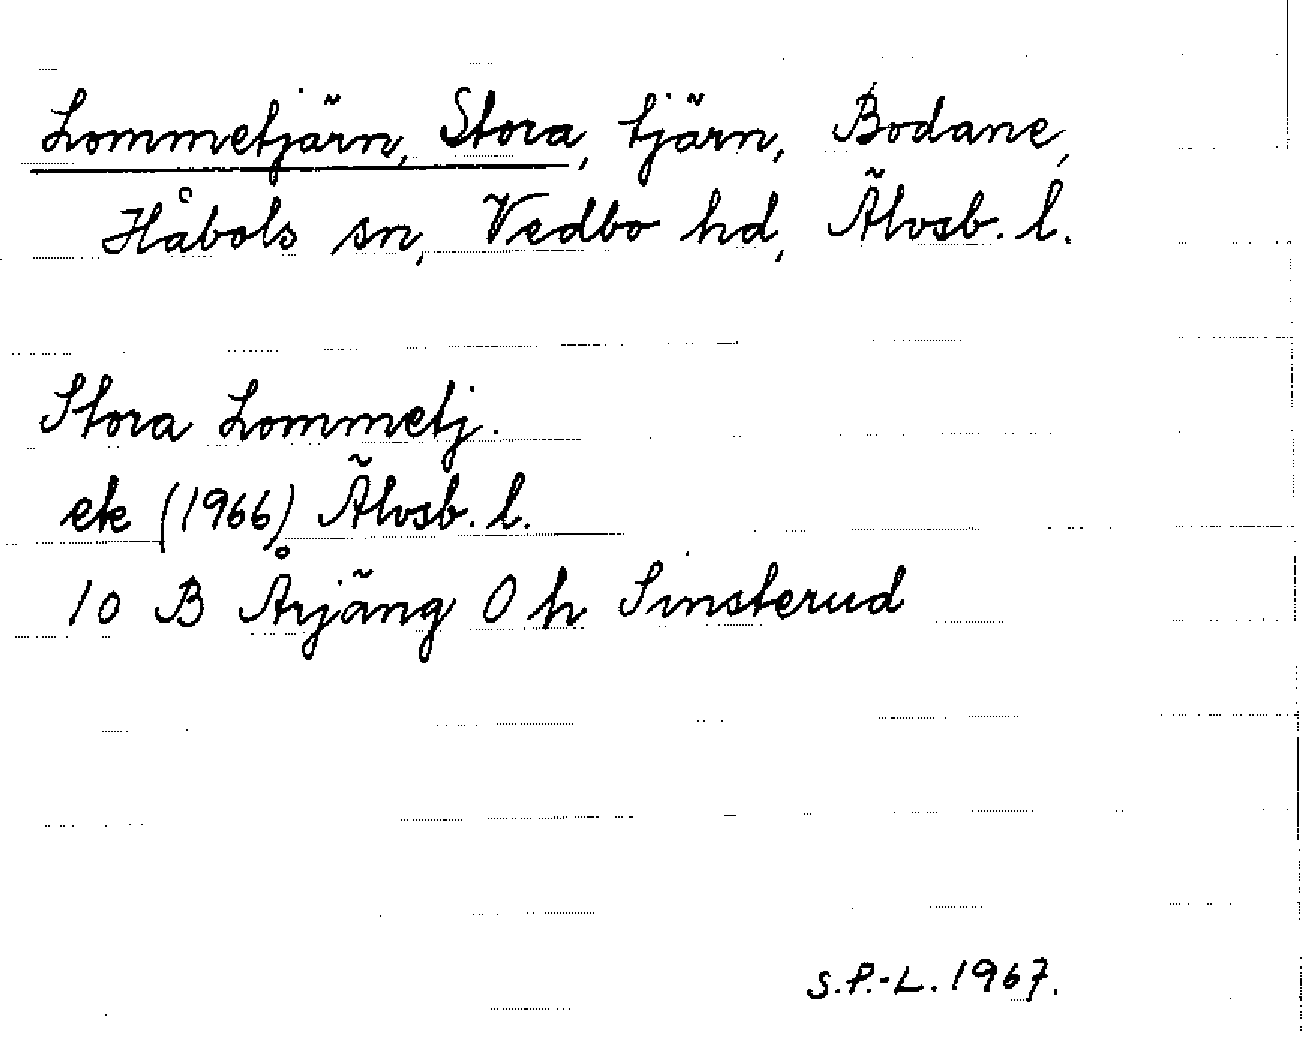 Lommetjärn, Stora, tjärn, Bodane,
Håbols sn, Vedbo hd, Älvsb. l.
Stora Lommetj.
ek (1966) Älvsb. l.
10 B Årjäng 0 h Sinsterud
S.P.-L. 1967.